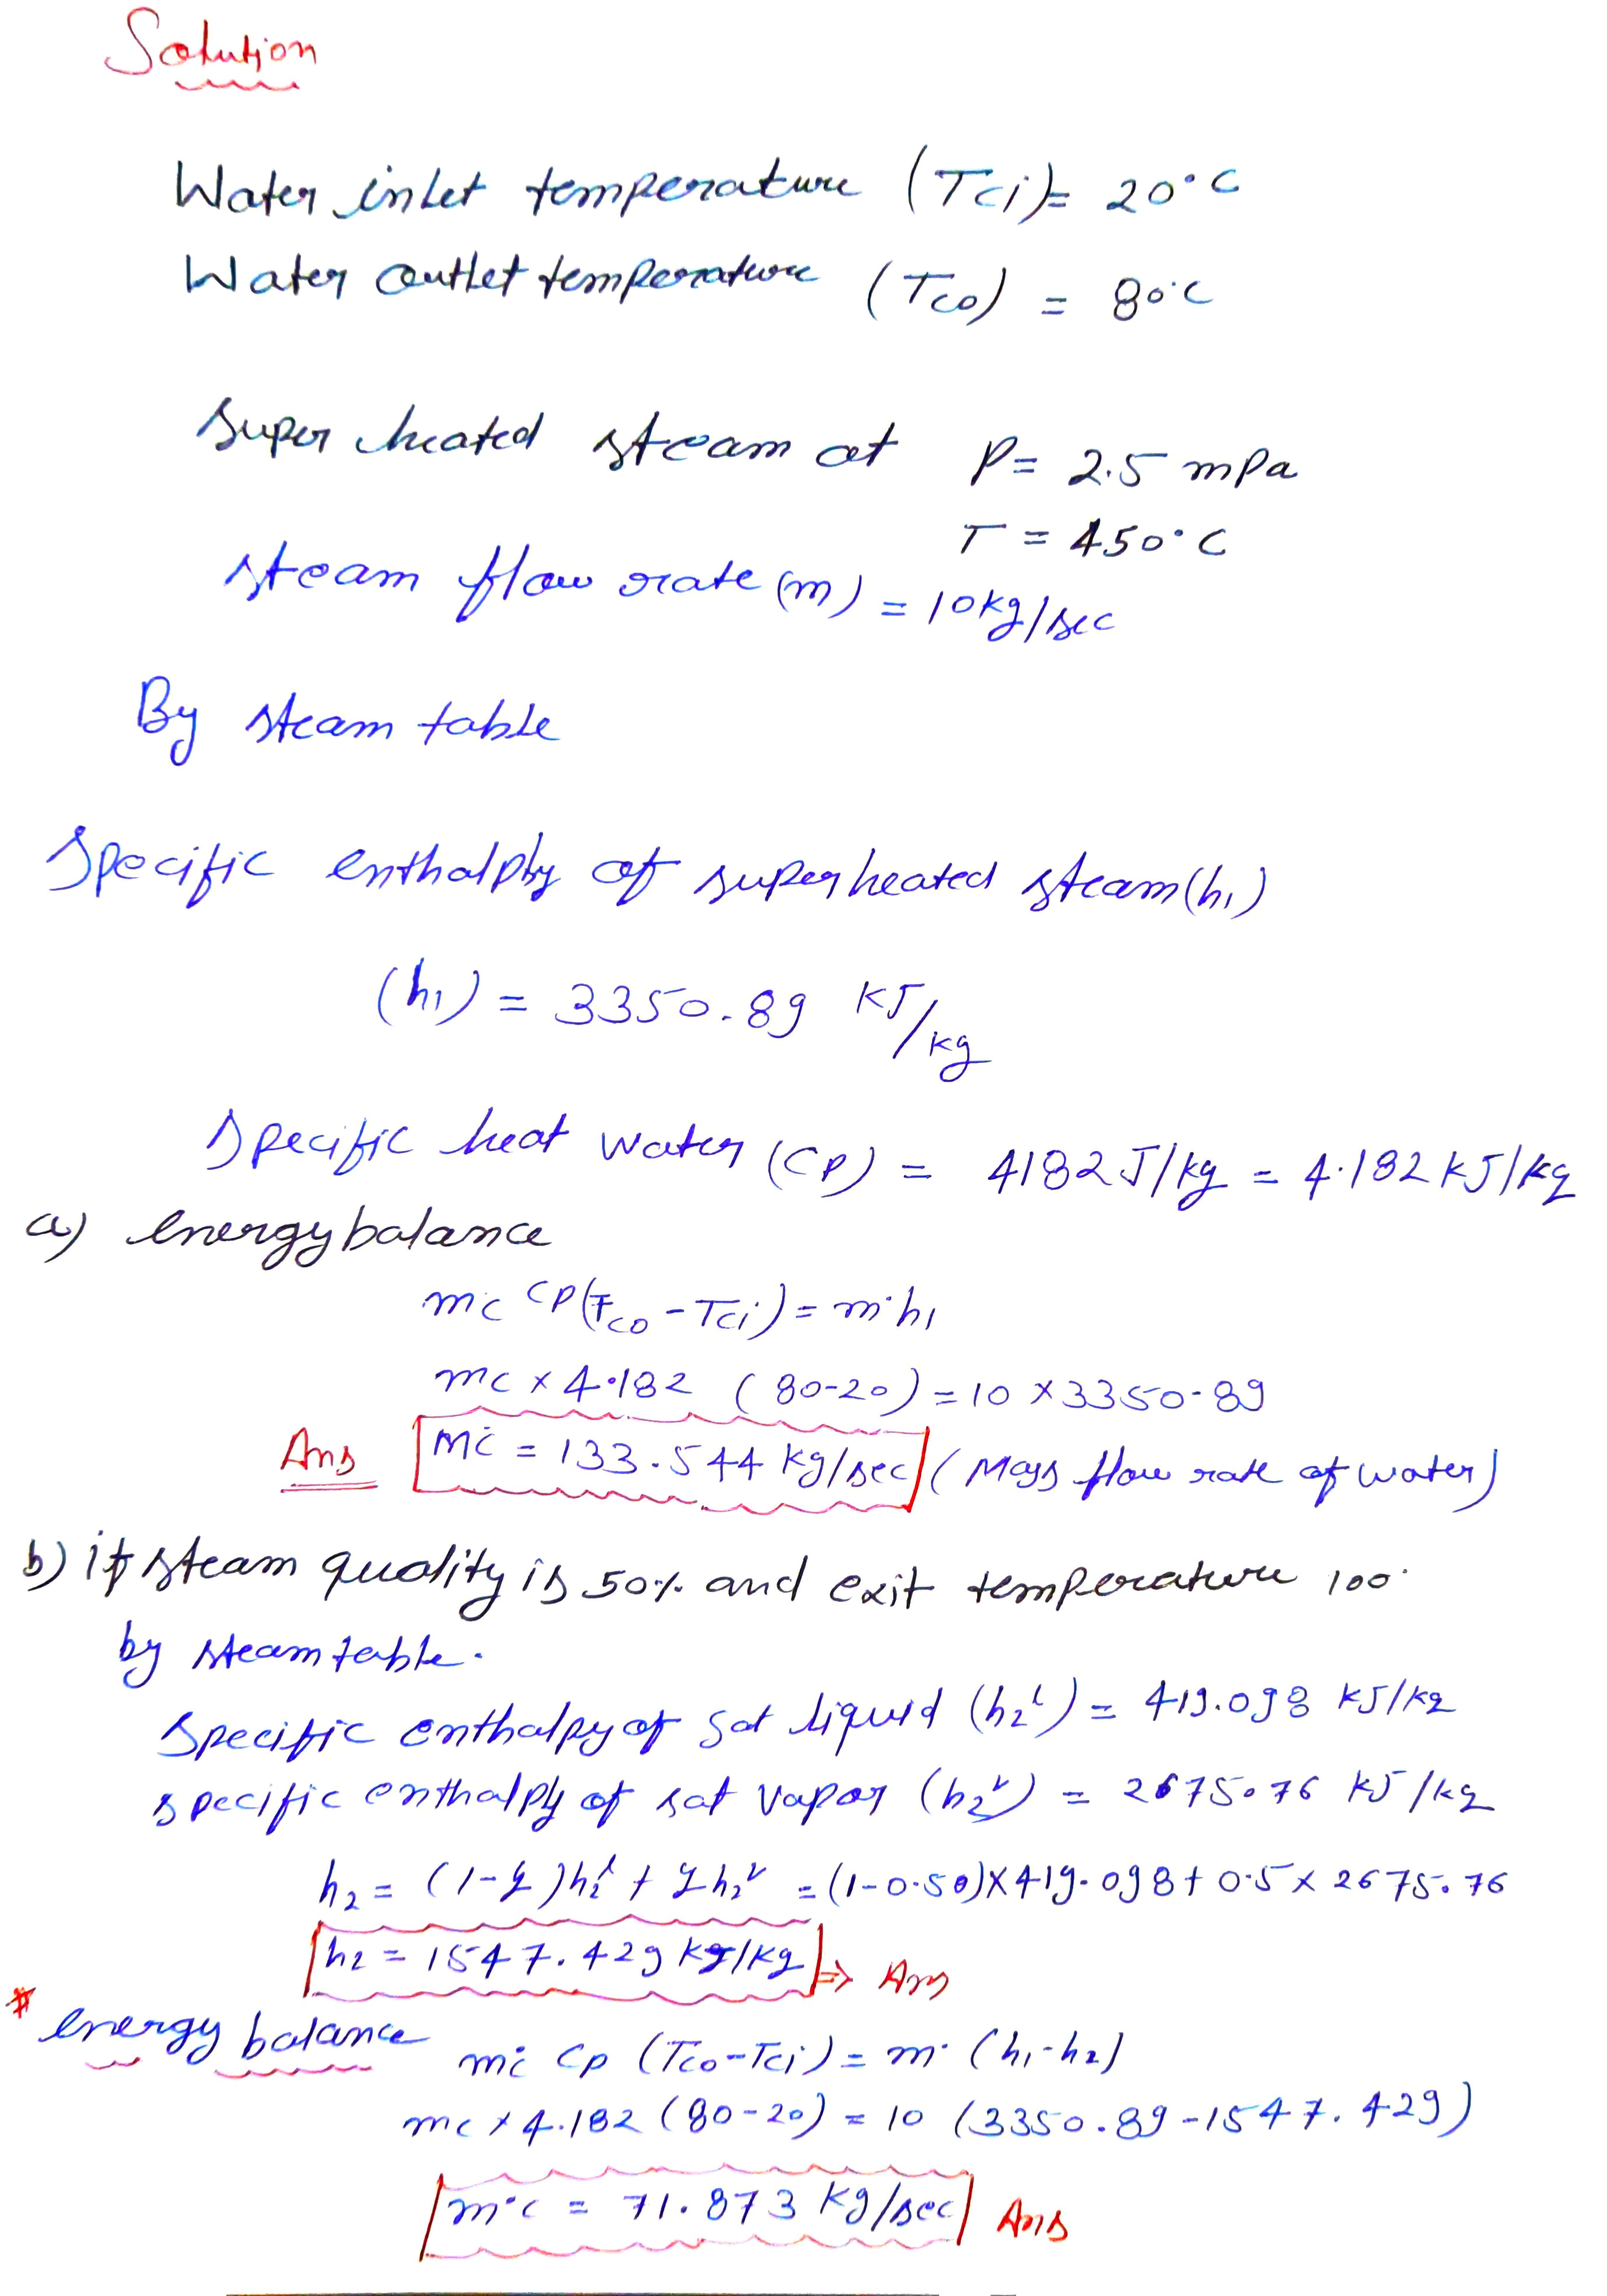 Solution
Water inlet temperature (Tci)= 20°C
Water outlet temperature (Tco) = 80°C
Super heated steam at P= 2.5 mPa
T = 450°C
steam flow rate (m) = 10kg/sec
By steam table
Specific enthalphy of superheated steam (h₁)
(h₁) = 3350.89 KJ/kg
Specific heat water (CP) = 4182 J/kg = 4.182 kJ/kg
a) energy balance
mc CP(Tco - Tci) = m· h₁
mc × 4.182 (80-20) = 10 × 3350.89
Ans mċ = 133.544 kg/sec (Mass flow rate of water)
b) if steam quality is 50% and exit temperature 100°
by steam table.
Specific enthalpy of sat liquid (h₂ˡ) = 419.098 kJ/kg
specific enthalphy of sat vapor (h₂ᵛ) = 2675.76 kJ/kg
h₂ = (1-y)h₂ˡ + yh₂ᵛ = (1-0.50)×419.098+0.5× 2675.76
h₂ = 1547.429 kJ/kg ⇒ Ans
* energy balance mċ Cp (Tco-Tci) = m· (h₁-h₂)
mc × 4.182 (80-20) = 10 (3350.89-1547.429)
m·c = 71.873 kg/sec Ans